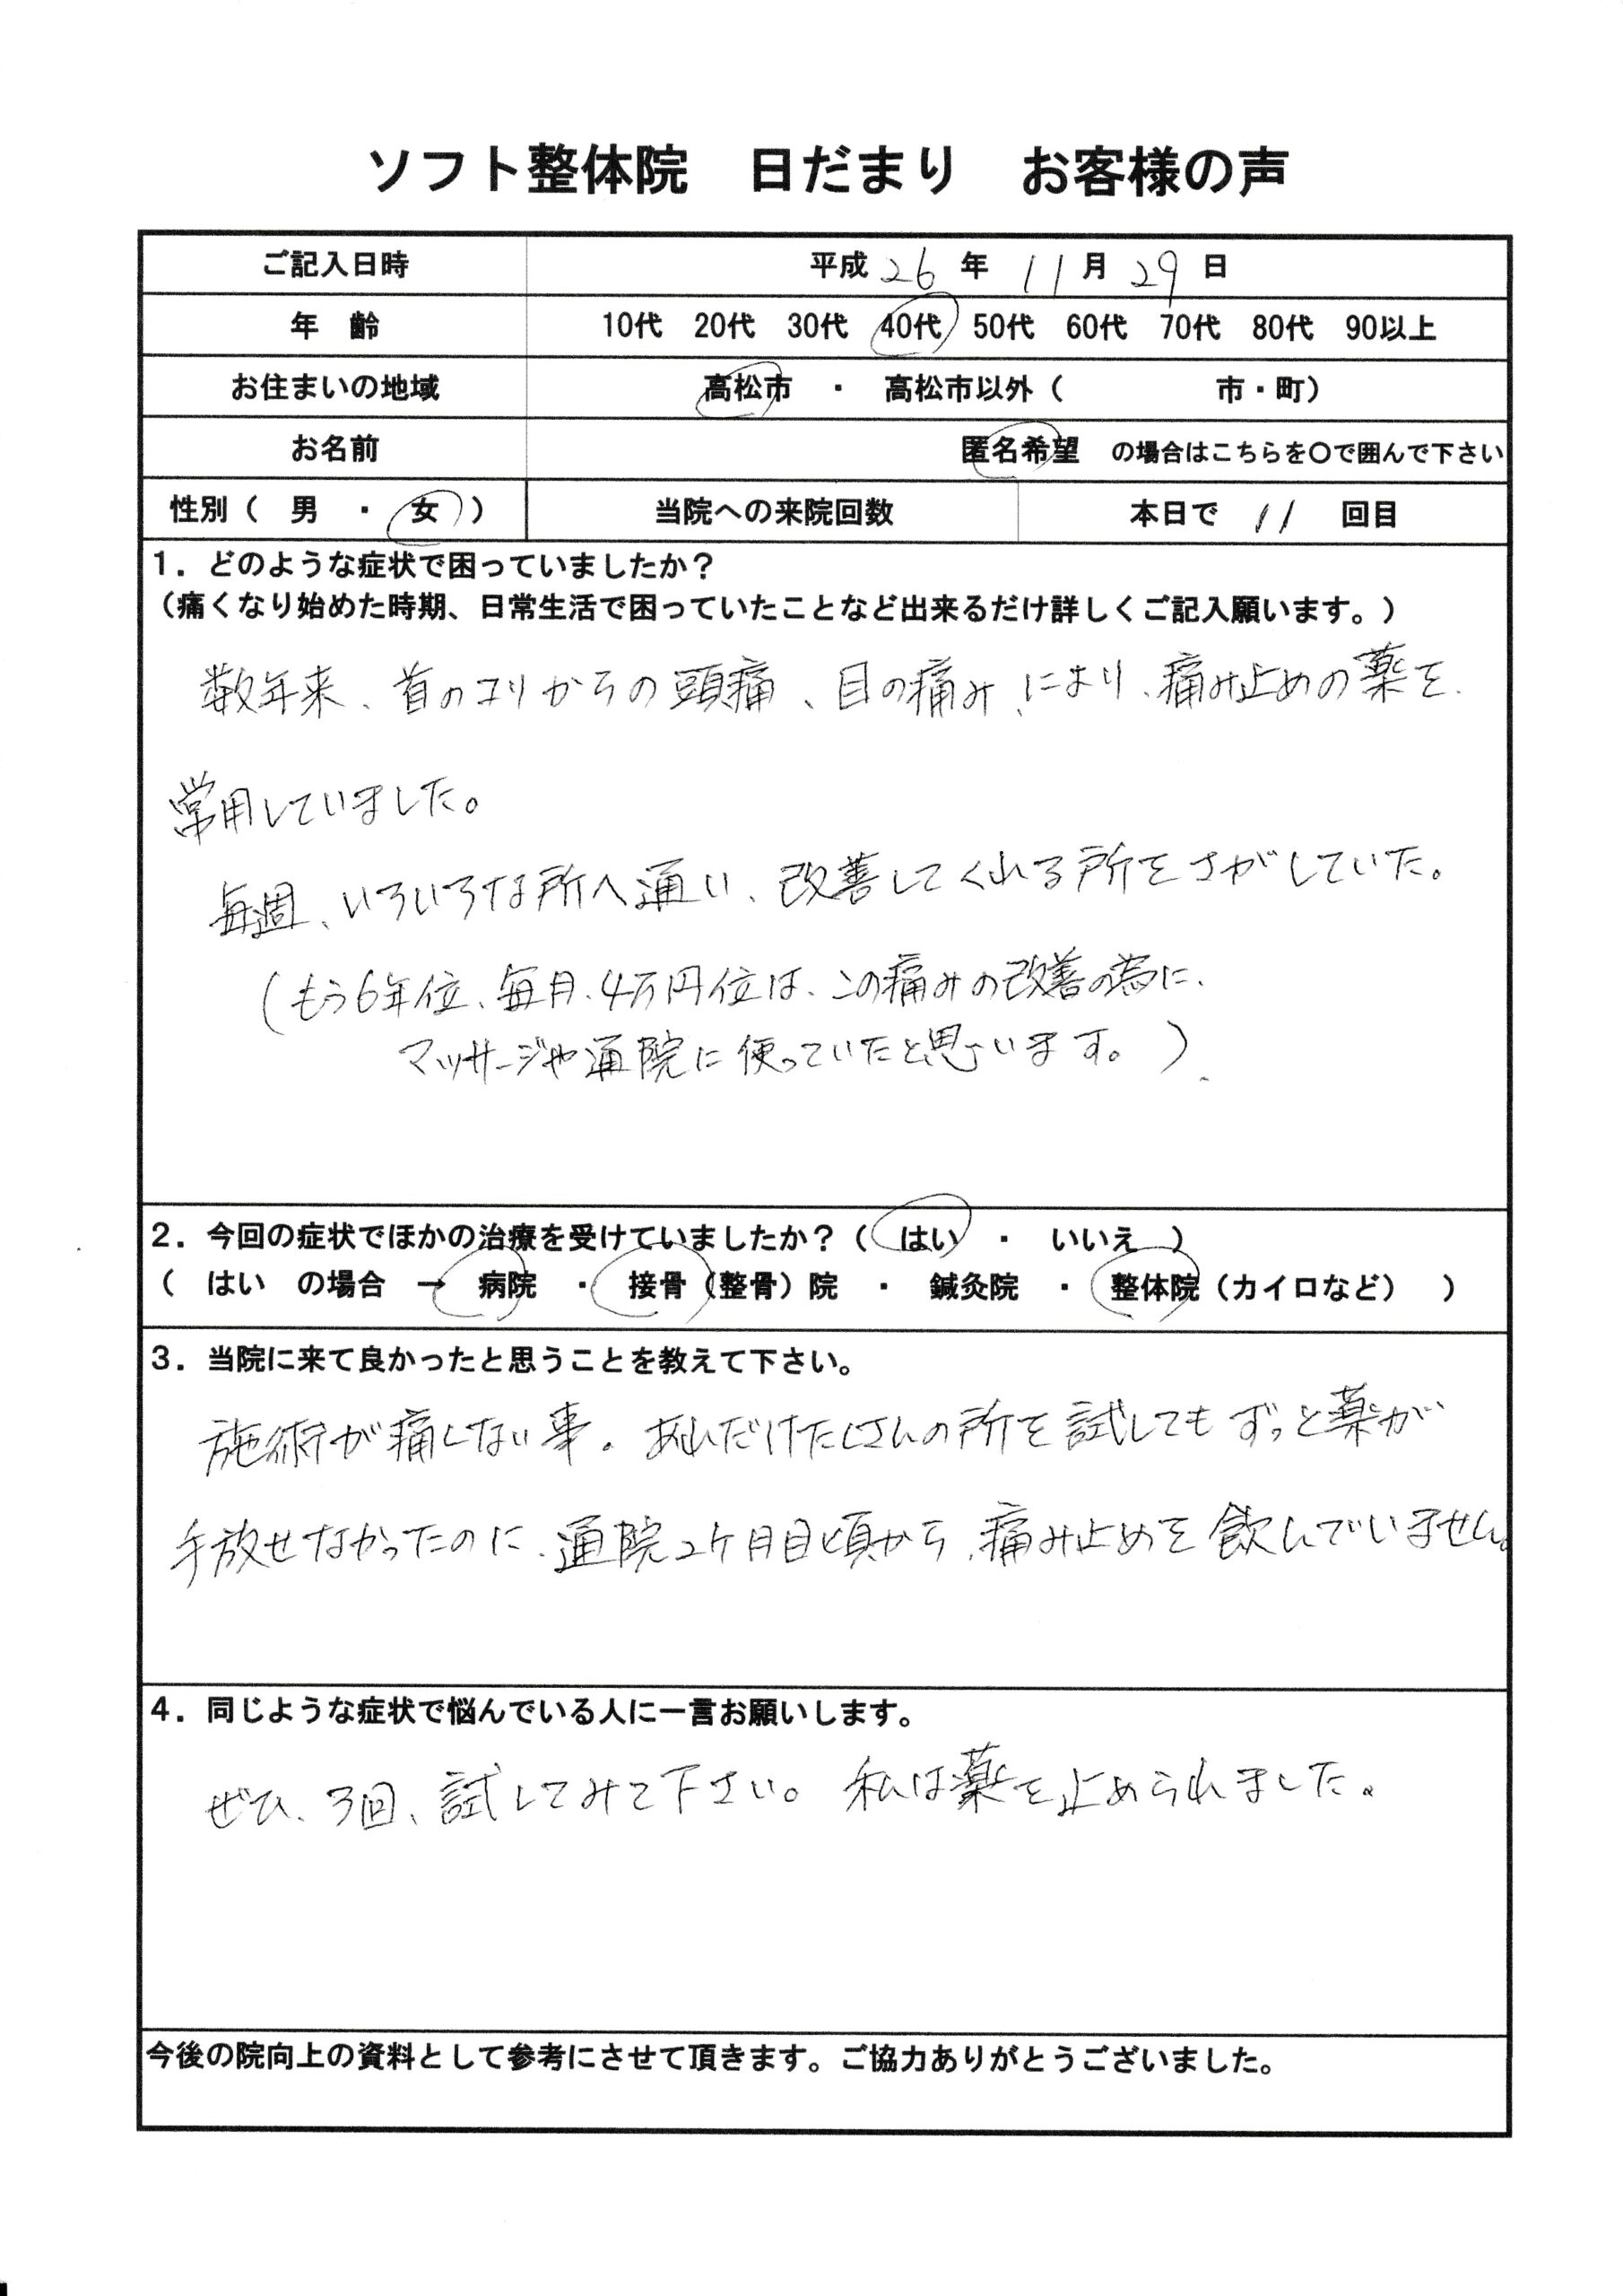 ソフト整体院　日だまり　お客様の声
ご記入日時　平成 26 年 11 月 29 日
年　齢　10代　20代　30代　40代　50代　60代　70代　80代　90以上
お住まいの地域　高松市　・　高松市以外（　　　　　市・町）
お名前　匿名希望　の場合はこちらを〇で囲んで下さい
性別（　男　・　女　）　当院への来院回数　本日で　11　回目
１．どのような症状で困っていましたか？
（痛くなり始めた時期、日常生活で困っていたことなど出来るだけ詳しくご記入願います。）
数年来、首のコリからの頭痛、目の痛み、により、痛み止めの薬を、
常用していました。
毎週、いろいろな所へ通い、改善してくれる所をさがしていた。
（もう6年位、毎月、4万円位は、この痛みの改善の為に、
マッサージや通院に使っていたと思います。）
２．今回の症状でほかの治療を受けていましたか？（　はい　・　いいえ　）
（　はい　の場合　→　病院　・　接骨（整骨）院　・　鍼灸院　・　整体院（カイロなど）　）
３．当院に来て良かったと思うことを教えて下さい。
施術が痛くない事。あれだけたくさんの所を試してもずっと薬が
手放せなかったのに、通院2ヶ月目頃から、痛み止めを飲んでいません。
４．同じような症状で悩んでいる人に一言お願いします。
ぜひ、3回、試してみて下さい。私は薬を止められました。
今後の院向上の資料として参考にさせて頂きます。ご協力ありがとうございました。